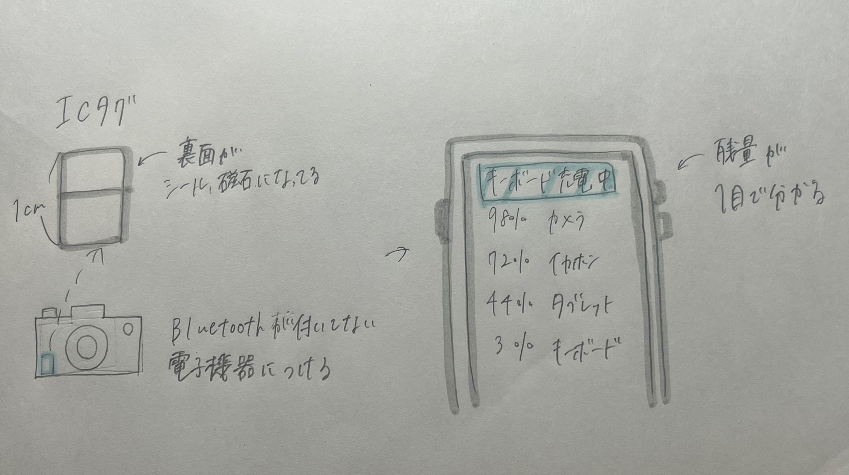 ICタグ
裏面が
シール、磁石になってる
1cm
Bluetoothが付いてない
電子機器につける
キーボード充電中
98% カメラ
72% イヤホン
44% タブレット
3% キーボード
残量が
1目で分かる